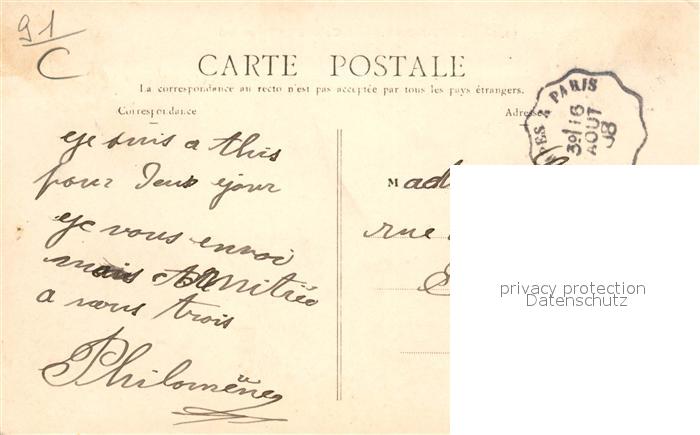 91
C
CARTE POSTALE
La correspondance au recto n'est pas acceptée par tous les pays étrangers.
Correspondance
Adresse
À PARIS
3º/16
AOUT
08
eje suis a this
pour deux ejour
eje vous envoi
mais Amitiée
a vous trois
Philomène
Mad
rue
privacy protection
Datenschutz